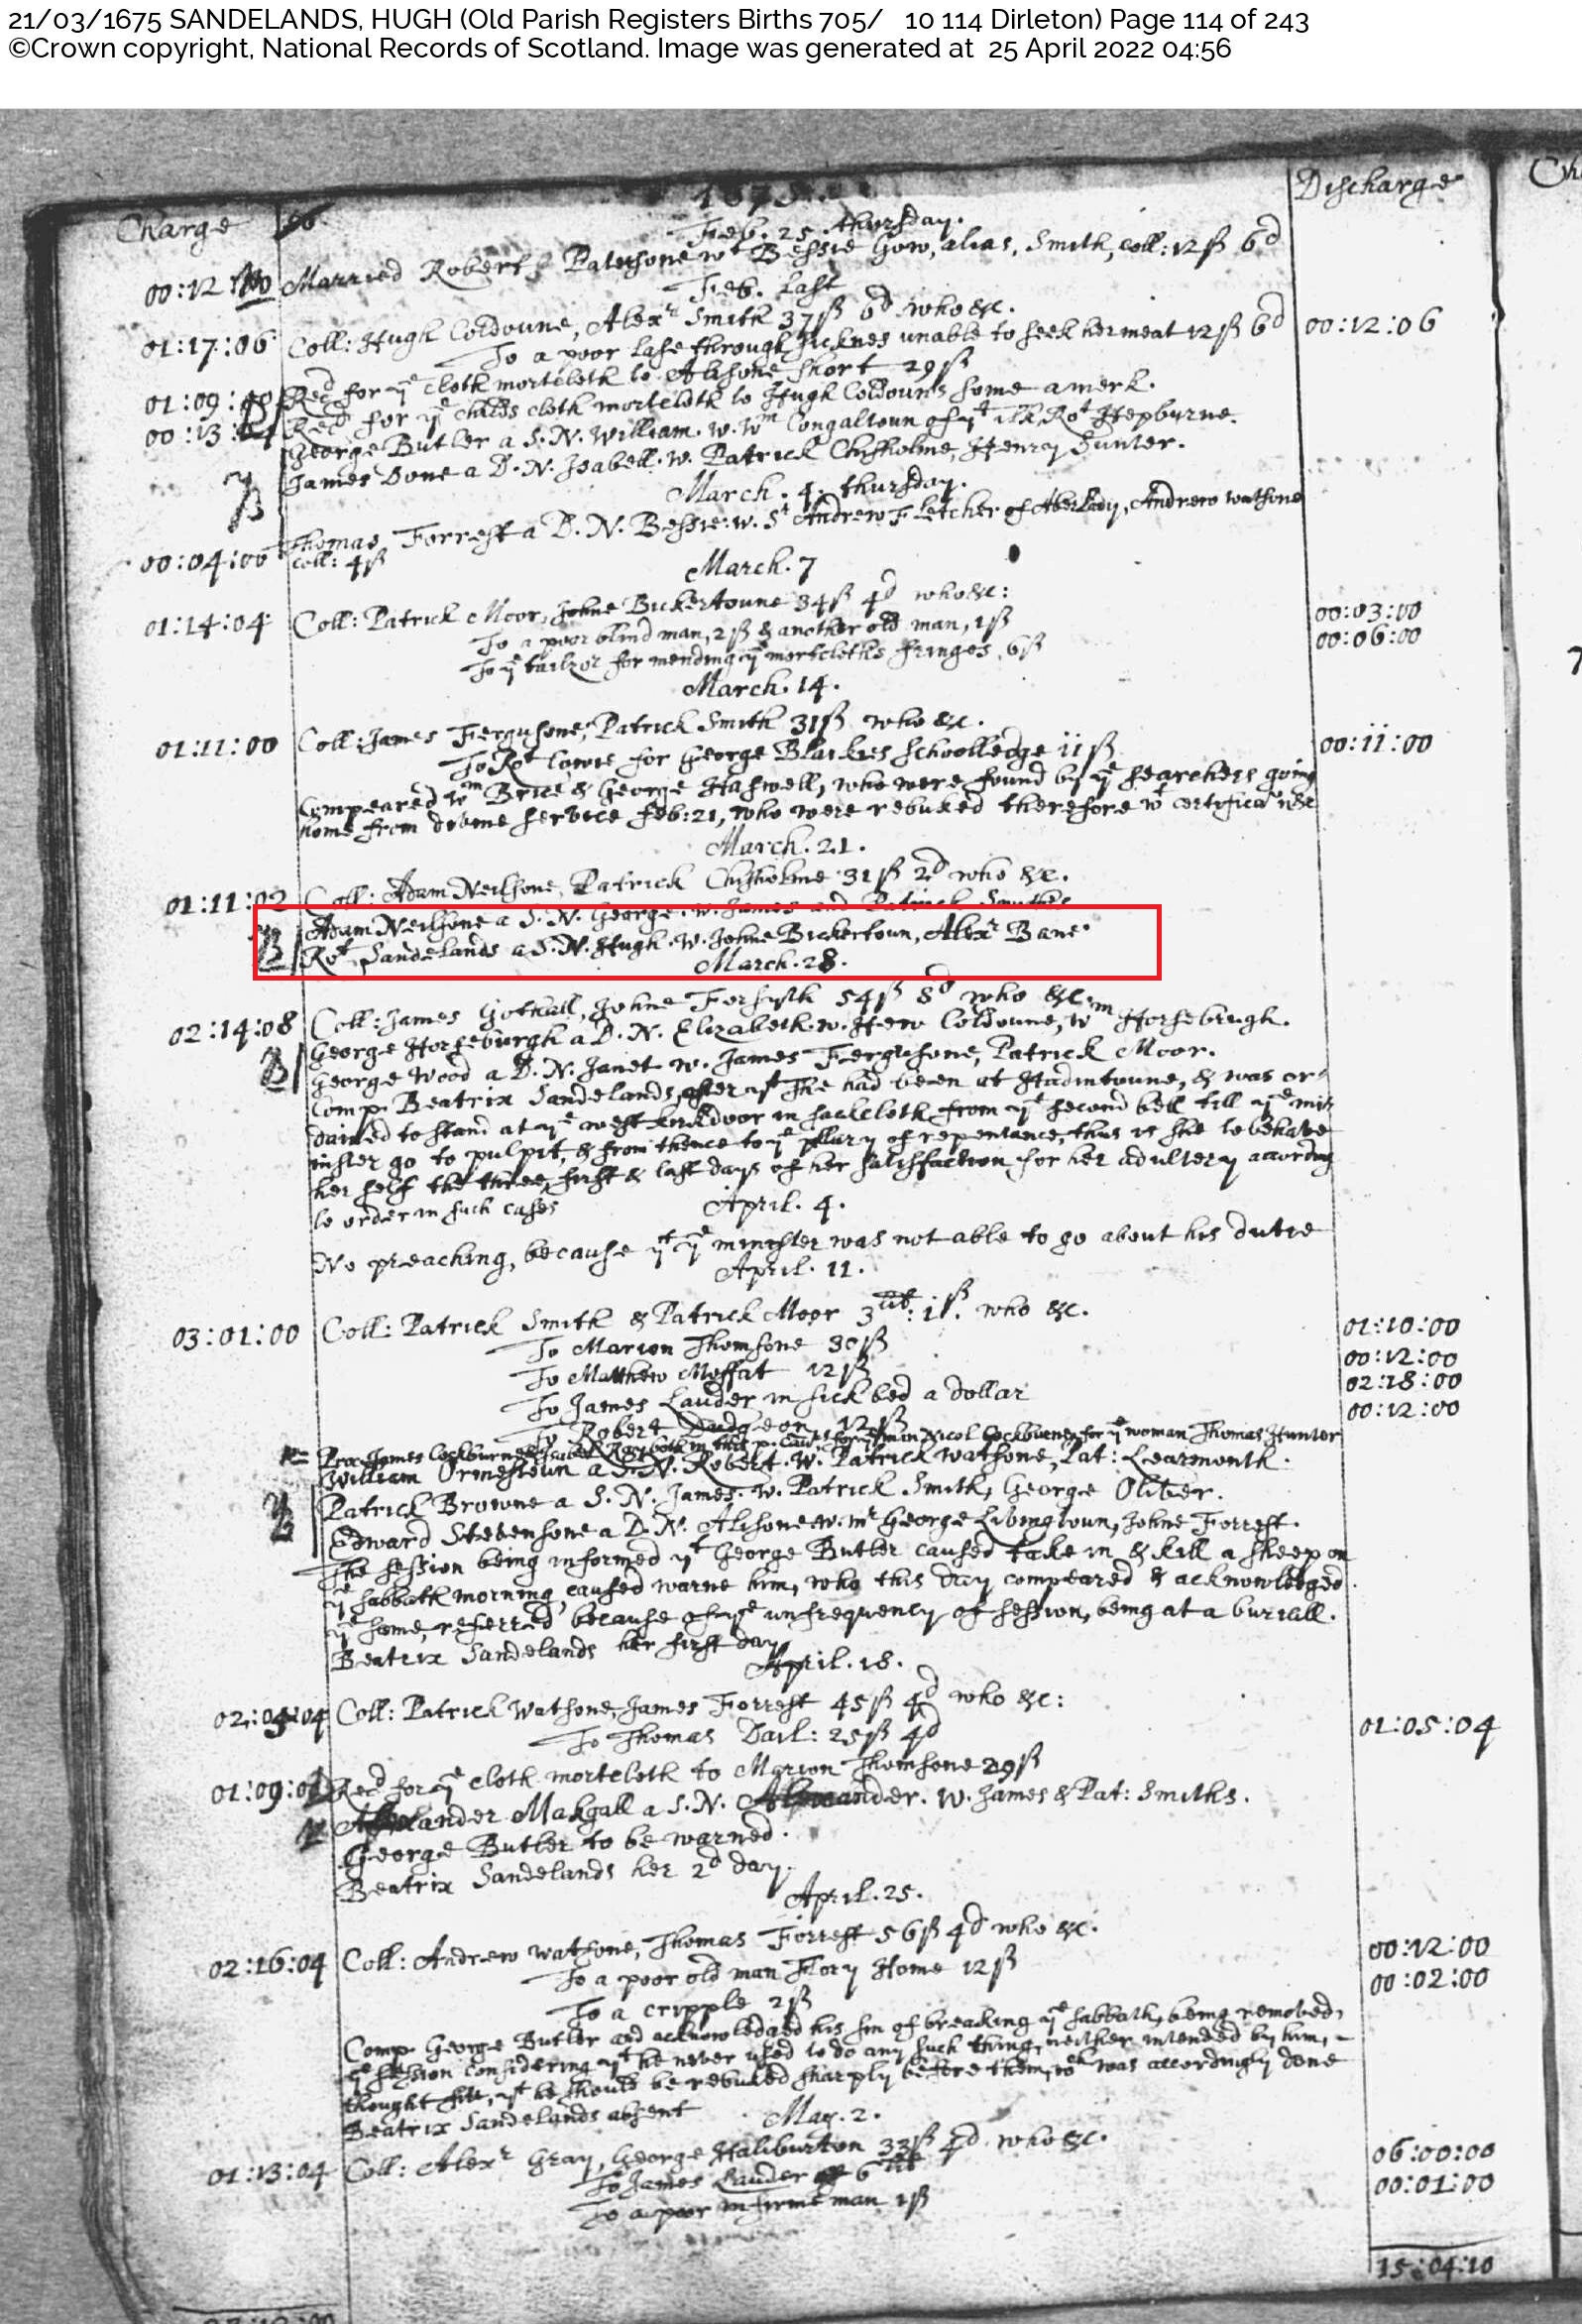 21/03/1675 SANDELANDS, HUGH (Old Parish Registers Births 705/ 10 114 Dirleton) Page 114 of 243
©Crown copyright, National Records of Scotland. Image was generated at 25 April 2022 04:56
1675
Charge Discharge
Feb. 25 thursday.
00:12 Married Robert Patersone wt Bessie Gow, alias, Smith, coll: 12ß 6d
Feb. last
01:17:06 Coll: Hugh Coldoune, Alexr Smith 37ß 6d who &c.
To a poor lasse through sicknes unable to seek her meat 12ß 6d 00:12:06
01:09:00 Recd for ye cloth mortcloth to Alisone Short 29ß
00:13:04 Recd for ye childs cloth mortcloth to Hugh Coldouns some a merk.
George Butler a S. N. William. w. Wm Congaltoun of yt ilk, Rot Hepburne.
B James Done a D. N. Isabell. w. Patrick Chisholme, Henry Hunter.
March. 4. thursday.
Thomas Forrest a D. N. Bessie. w. Sr Andrew Fletcher of Aberlady, Andrew watsone
00:04:00 coll: 4ß
March. 7
01:14:04 Coll: Patrick Moor, Johne Bickertoune 34ß 4d who &c:
To a poor blind man, 2ß & another old man, 1ß 00:03:00
To ye tailzor for mending ye mortcloths fringes, 6ß 00:06:00
March. 14.
01:11:00 Coll: James Fergusone, Patrick Smith 31ß who &c.
To Rot Lowre for George Blaikies schoolledge 11ß 00:11:00
Compeared Wm Brice & George Haswell, who were found by ye searchers going
home from divine service feb: 21, who were rebuked therefore wt &c
March. 21.
01:11:02 Coll: Adam Neilsone, Patrick Chisholme 31ß 2d who &c.
Adam Neilsone a S. N. George. w. James and Patrick Smithes
B Rot Sandelands a S. N. Hugh. w. Johne Bickertoun, Alexr Bane.
March. 28.
02:14:08 Coll: James Gothall, Johne Forsyth 54ß 8d who &c.
George Horseburgh a D. N. Elizabeth. w. Hew Coldoune, Wm Horsebrugh.
B George Wood a D. N. Janet w. James Fergusone, Patrick Moor.
Comp. Beatrix Sandelands, after yt she had been at Hadintoune, & was or-
dained to stand at ye west kirkdoor in sackcloth from ye second bell till ye min-
inster go to pulpit, & from thence to ye pillary of repentance, thus is she to behave
her self the three, first & last days of her satisfaction for her adultery according
to order in such cases
April. 4.
No preaching, because yt ye minister was not able to go about his dutie
April. 11.
03:01:00 Coll: Patrick Smith & Patrick Moor 3lib: 1ß. who &c.
To Marion Thomsone 30ß 01:10:00
To Matthew Moffat 12ß 00:12:00
To James Lauder in sick bed a dollar 02:18:00
To Robert Dudgeon 12ß 00:12:00
Proc. James Cockburne & Isabel both in this p. man Nicol Cockburne, for ye woman Thomas Hunter
William Ormestoun a S. N. Robert. w. Patrick watsone, Pat: Learmonth.
B Patrick Browne a S. N. James. w. Patrick Smith, George Oliver.
Edward Stevensone a D. N. Alisone w. mr George Livingtoun, Johne Forrest.
The session being informed yt George Butler caused take in & kill a sheep on
ye sabbath morning, caused warne him, who this day compeared & acknowledged
ye same, referred because of ye unfrequency of session, being at a buriall.
Beatrix Sandelands her first day
April. 18.
02:05:04 Coll: Patrick Watsone, James Forrest 45ß 4d who &c:
To Thomas Dail: 25ß 4d 01:05:04
01:09:00 Recd for ye cloth mortcloth to Marion Thomsone 29ß
Alexander Makgall a S. N. Alexander. w. James & Pat: Smiths.
George Butler to be warned.
Beatrix Sandelands her 2d day.
April. 25.
02:16:04 Coll: Andrew watsone, Thomas Forrest 56ß 4d who &c.
To a poor old man Flory Home 12ß 00:12:00
To a cripple 2ß 00:02:00
Comp. George Butler and acknowledged his sin of breaking ye sabbath, being removed,
ye session considering yt he never used to do any such thing, neither intended by him,
thought fitt, yt he should be rebuked sharply before them, wch was accordingly done
Beatrix Sandelands absent
May. 2.
01:13:04 Coll: Alexr Gray, George Haliburton 33ß 4d. who &c.
To James Lauder 6lib 06:00:00
To a poor infirme man 1ß 00:01:00
15:04:10